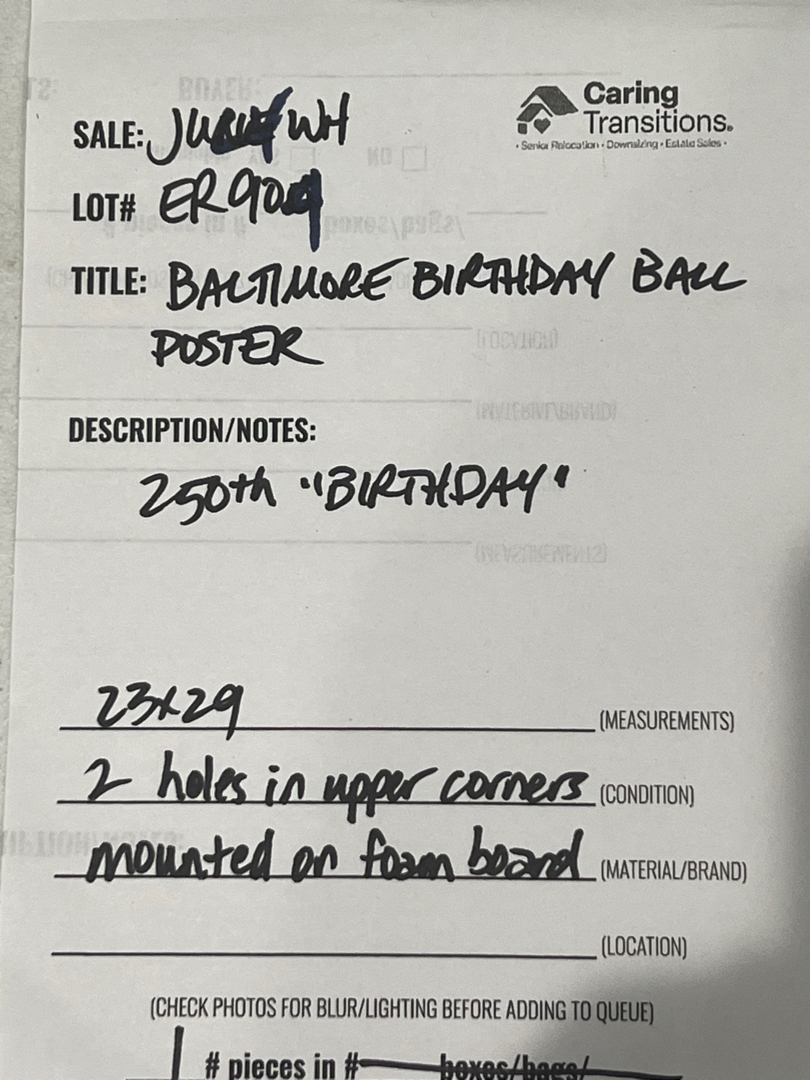 Caring
Transitions®
• Senior Relocation • Downsizing • Estate Sales •
SALE: WH
LOT#
TITLE: BALTIMORE BIRTHDAY BALL
POSTER
DESCRIPTION/NOTES:
250th "BIRTHDAY"
23x29 (MEASUREMENTS)
2 holes in upper corners (CONDITION)
mounted on foam board (MATERIAL/BRAND)
(LOCATION)
(CHECK PHOTOS FOR BLUR/LIGHTING BEFORE ADDING TO QUEUE)
1 # pieces in # boxes/bags/